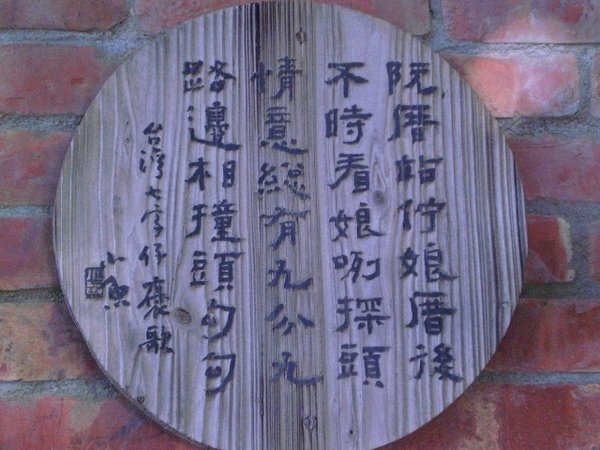 阮厝跕佇娘厝後
不時看娘咧探頭
情意總有九分九
路邊相撞頭勾勾
台灣七字仔褒歌
小魚